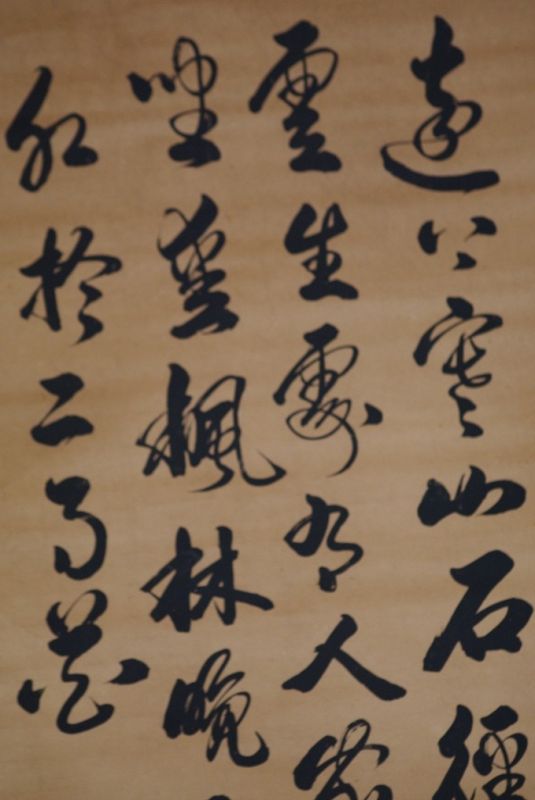 遠上寒山石徑
雲生處有人家
坐愛楓林晚
紅於二月花